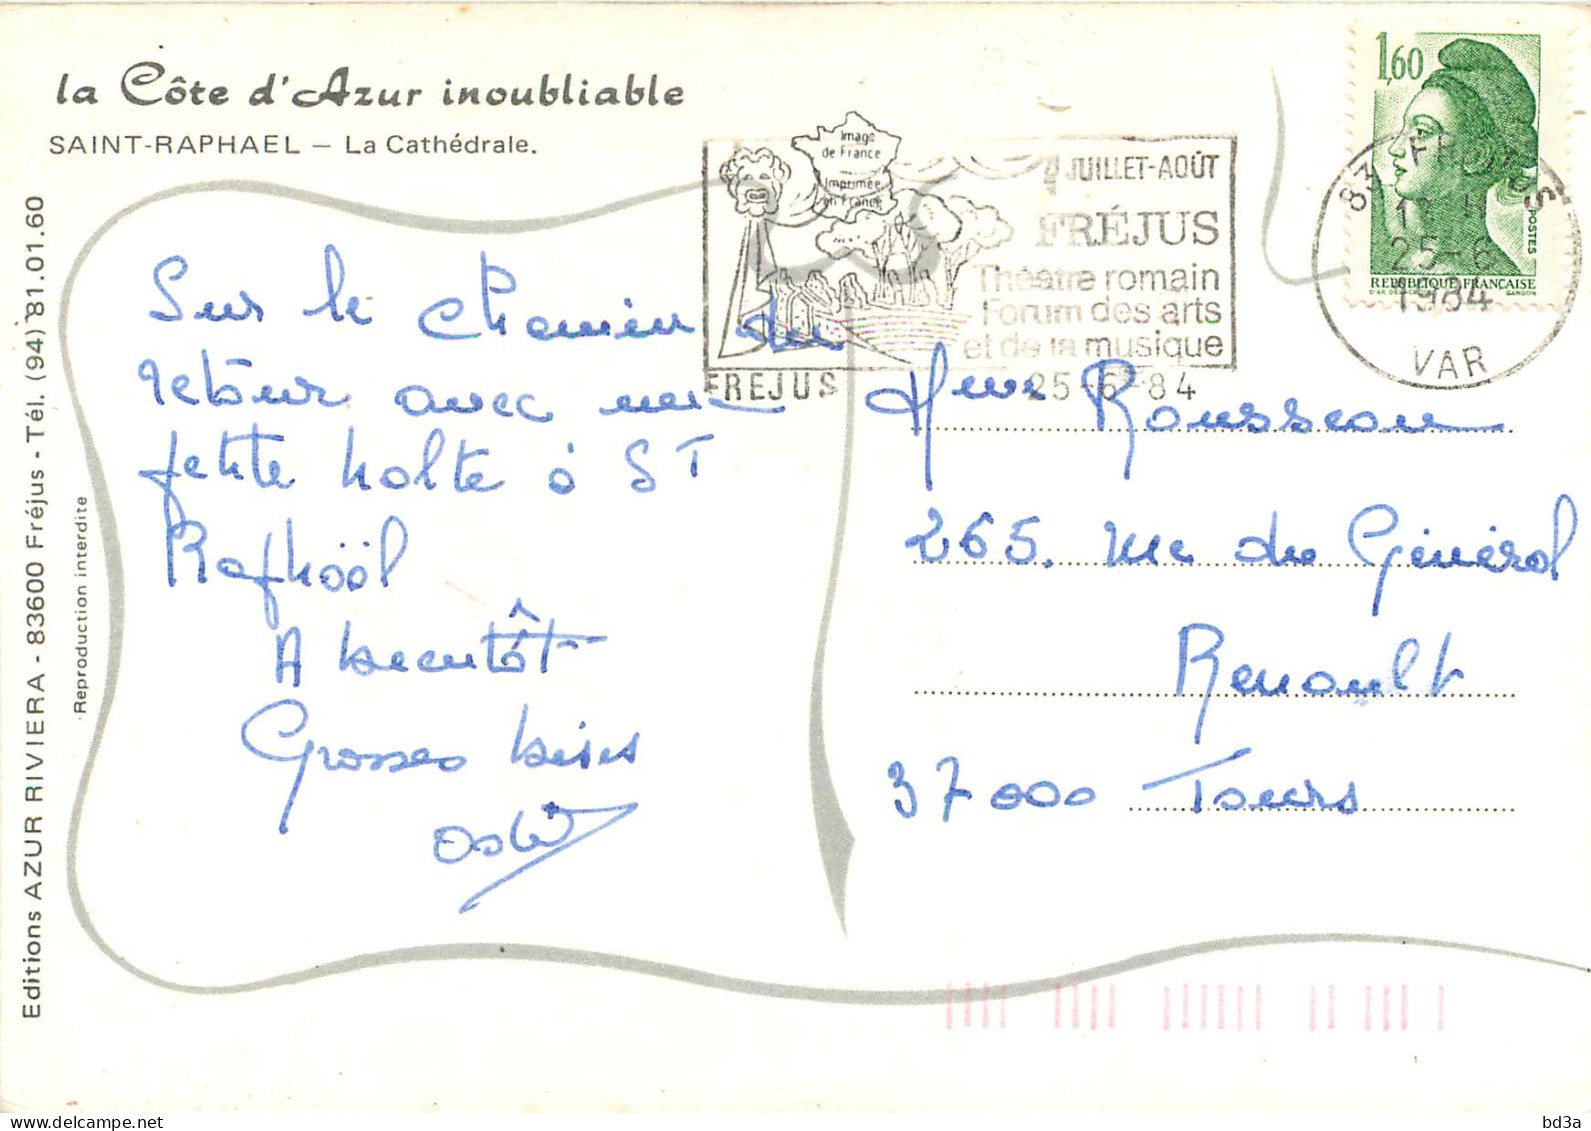 la Côte d'Azur inoubliable
SAINT-RAPHAEL – La Cathédrale.
Editions AZUR RIVIERA - 83600 Fréjus - Tél. (94) 81.01.60
Reproduction interdite
Image
de France
Imprimée
en France
JUILLET-AOÛT
FRÉJUS
Théatre romain
Forum des arts
et de la musique
FREJUS
25-6-84
1,60
POSTES
REPUBLIQUE FRANÇAISE
GANDON
83 FREJUS
25-6
1984
VAR
Sur le Chemin du
retour avec une
petite halte à ST
Raphaël
A bientôt
Grosses bises
Mme Rousseau
265. rue du Général
Renault
37000 Tours
bd3a